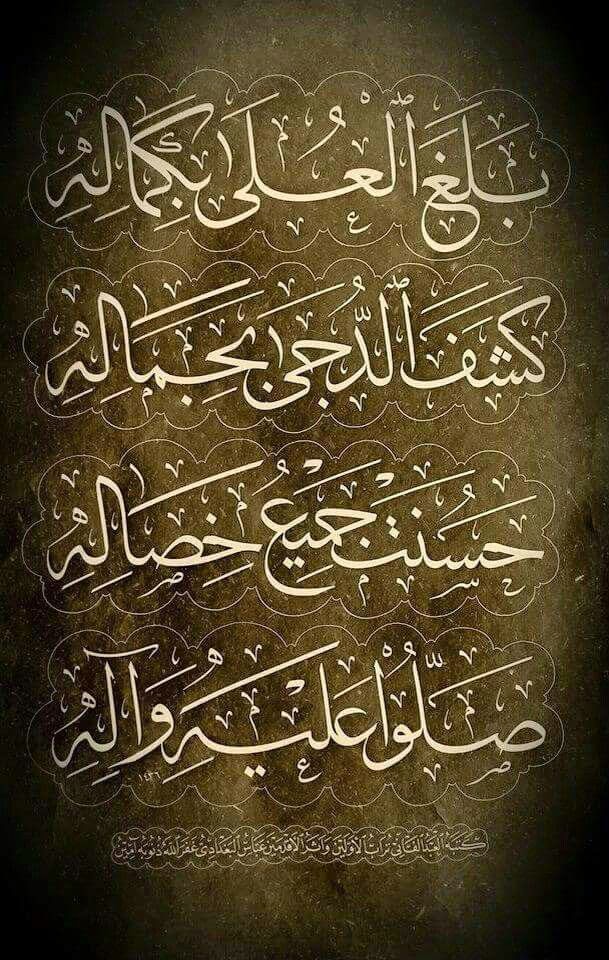 بَلَغَ ٱلْعُلَىٰ بِكَمَالِهِ
كَشَفَ ٱلدُّجَىٰ بِجَمَالِهِ
حَسُنَتْ جَمِيعُ خِصَالِهِ
صَلُّوا عَلَيْهِ وَآلِهِ
١٤٣٦
كتبه العبد الفاني تراب الأولين واثر الأقدمين عباس البغدادي غفر الله ذنوبه آمين